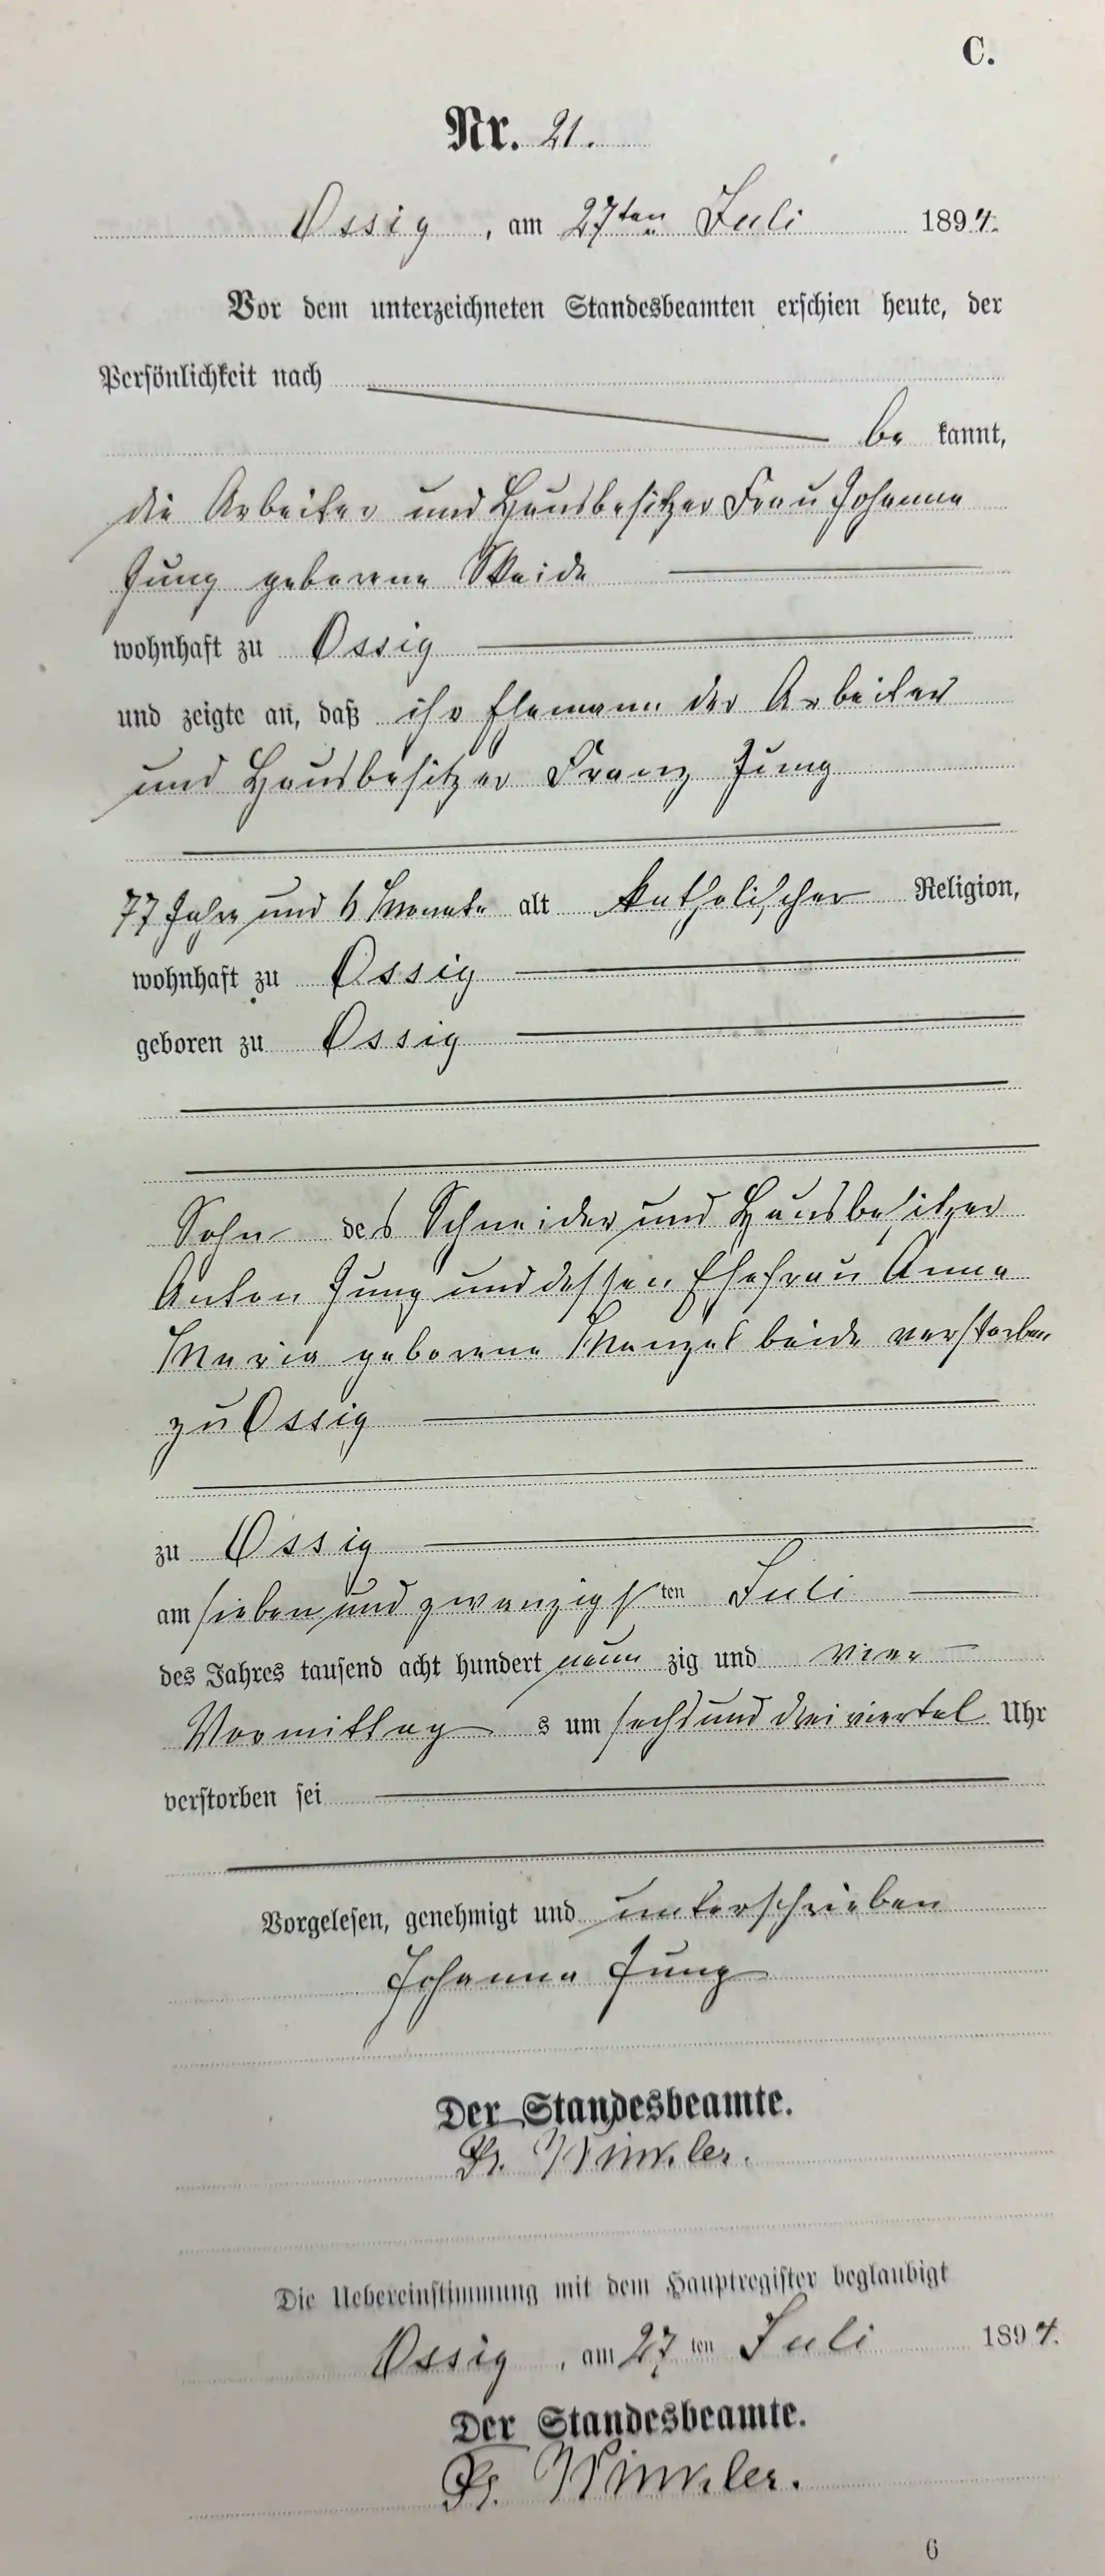 C.
Nr. 21.
Ossig, am 27ten Juli 1894.
Vor dem unterzeichneten Standesbeamten erschien heute, der
Persönlichkeit nach
be kannt,
die Arbeiter und Hausbesitzer Frau Johanna
Jung geborene Weide
wohnhaft zu Ossig
und zeigte an, daß ihr Ehemann der Arbeiter
und Hausbesitzer Franz Jung
77 Jahre und 6 Monate alt katholischer Religion,
wohnhaft zu Ossig
geboren zu Ossig
Sohn des Schneider und Hausbesitzer
Anton Jung und dessen Ehefrau Anna
Maria geborene Menzel beide verstorben
zu Ossig
zu Ossig
am sieben und zwanzigsten Juli
des Jahres tausend acht hundert neun zig und vier
Vormittag s um sechs und dreiviertel Uhr
verstorben sei
Vorgelesen, genehmigt und unterschrieben
Johanna Jung
Der Standesbeamte.
Winkler.
Die Uebereinstimmung mit dem Hauptregister beglaubigt
Ossig, am 27 ten Juli 1894.
Der Standesbeamte.
Winkler.
6